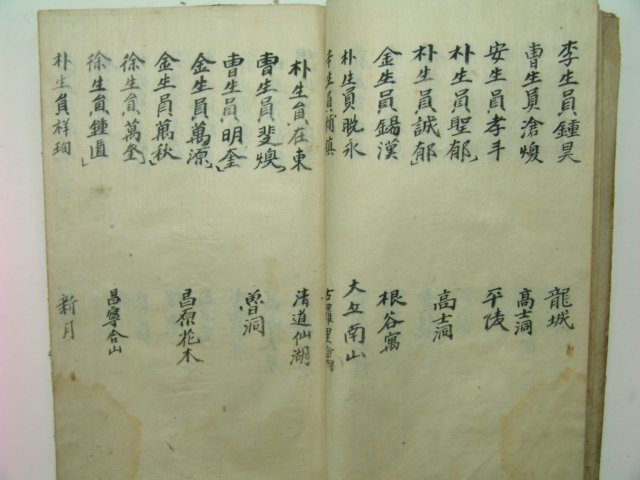 李生員鍾昊 龍城
曺生員滄煥 高士洞
安生員孝斗 平陵
朴生員聖郁
朴生員誠郁 高士洞
金生員錫漢 根谷寓
朴生員晩永 大丘南山
朴生員在東 清道仙湖
曺生員斐煥
曺生員明奎 魯洞
金生員萬源
金生員萬秋 昌原花木
徐生員萬奎
徐生員鍾直 昌寧合山
朴生員祥珣 新月